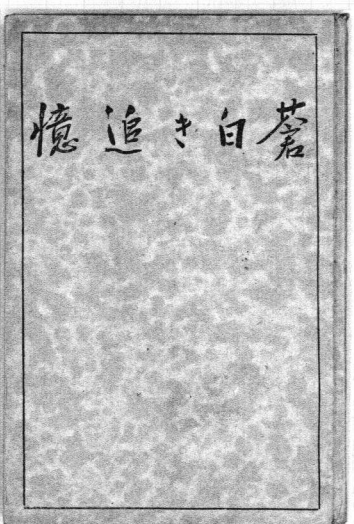 蒼白き追憶